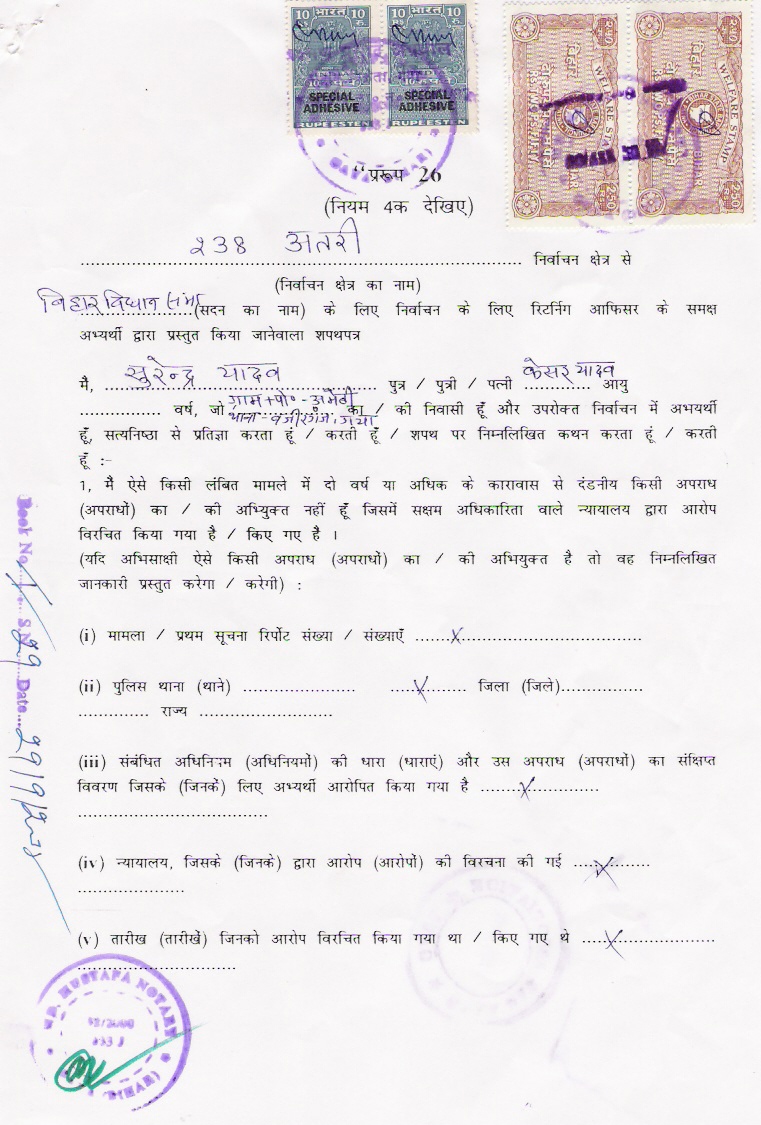 10 भारत 10
रु. RS
SPECIAL ADHESIVE
RUPEESTEN
10 भारत 10
RS रु.
SPECIAL ADHESIVE
RUPEESTEN
WELFARE STAMP
बिहार
2.50
WELFARE STAMP
बिहार
2.50
“प्ररूप 26
(नियम 4क देखिए)
२३8 अतरी ................ निर्वाचन क्षेत्र से
(निर्वाचन क्षेत्र का नाम)
बिहार विधान सभा (सदन का नाम) के लिए निर्वाचन के लिए रिटर्निग आफिसर के समक्ष
अभ्यर्थी द्वारा प्रस्तुत किया जानेवाला शपथपत्र
मै, सुरेन्द्र यादव ................ पुत्र / पुत्री / पत्नी केसर यादव आयु
............... वर्ष, जो ग्राम+पो०- थाना- वजीरगंज, गया का / की निवासी हूँ और उपरोक्त निर्वाचन में अभयर्थी
हूँ, सत्यनिष्ठा से प्रतिज्ञा करता हूं / करती हूँ / शपथ पर निम्नलिखित कथन करता हूं / करती
हूँ :-
1, मैं ऐसे किसी लंबित मामले में दो वर्ष या अधिक के कारावास से दंडनीय किसी अपराध
(अपराधों) का / की अभ्युिक्त नहीं हूँ जिसमें सक्षम अधिकारिता वाले न्यायालय द्वारा आरोप
विरचित किया गया है / किए गए है ।
(यदि अभिसाक्षी ऐसे किसी अपराध (अपराधों) का / की अभियुक्त है तो वह निम्नलिखित
जानकारी प्रस्तुत करेगा / करेगी) :
(i) मामला / प्रथम सूचना रिर्पोट संख्या / संख्याएँ .......X..............................
(ii) पुलिस थाना (थाने) ..................... .....X........ जिला (जिले)...............
............. राज्य .........................
(iii) संबंधित अधिनियम (अधिनियमों) की धारा (धाराएं) और उस अपराध (अपराधों) का संक्षिप्त
विवरण जिसके (जिनके) लिए अभ्यर्थी आरोपित किया गया है ........X.............
....................................
(iv) न्यायालय, जिसके (जिनके) द्वारा आरोप (आरोपों) की विरचना की गई .....X.........
....................
(v) तारीख (तारीखें) जिनको आरोप विरचित किया गया था / किए गए थे .....X...................
..............................
Book No. 1 S.N. 29 Date
MD. MUSTAFA NOTARY
(BIHAR)